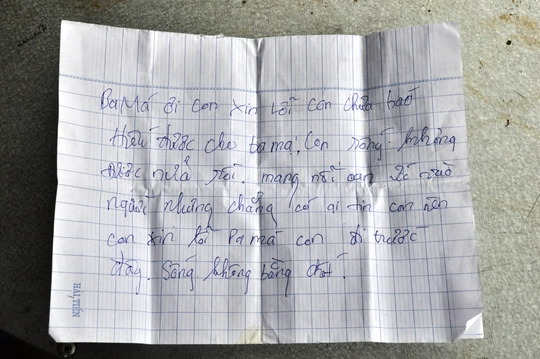 Ba Má ơi con xin lỗi con chưa báo
Hiếu được cho ba má. Con sống không
được nữa rồi. mang nỗi oan
người nhưng chẳng có ai tin con nên
con xin lỗi Pa má con đi trước
đây. Sống không bằng chết.
HẢI TIẾN